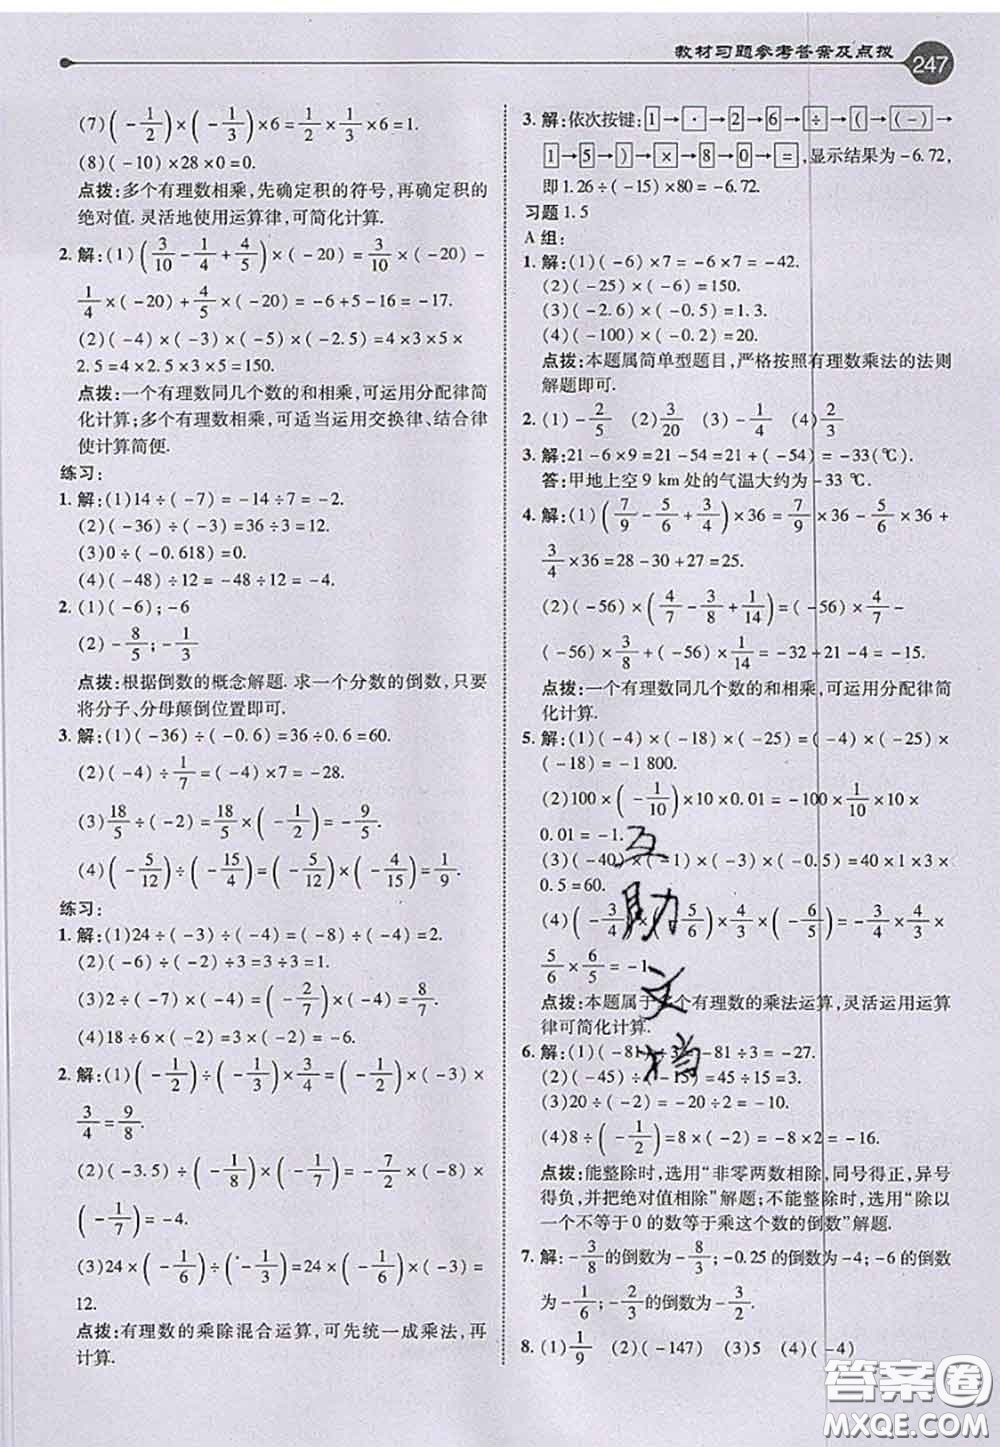 教材习题参考答案及点拨 247
(7)(-1/2)×(-1/3)×6=1/2×1/3×6=1.
(8)(-10)×28×0=0.
点拨:多个有理数相乘,先确定积的符号,再确定积的
绝对值.灵活地使用运算律,可简化计算.
2. 解:(1)(3/10-1/4+4/5)×(-20)=3/10×(-20)-
1/4×(-20)+4/5×(-20)=-6+5-16=-17.
(2)(-4)×(-3)×(-5)×(-2.5)=4×3×5×
2.5=4×2.5×3×5=150.
点拨:一个有理数同几个数的和相乘,可运用分配律简
化计算;多个有理数相乘,可适当运用交换律、结合律
使计算简便.
练习:
1. 解:(1)14÷(-7)=-14÷7=-2.
(2)(-36)÷(-3)=36÷3=12.
(3)0÷(-0.618)=0.
(4)(-48)÷12=-48÷12=-4.
2. (1)(-6);-6
(2)-8/5;-1/3
点拨:根据倒数的概念解题.求一个分数的倒数,只要
将分子、分母颠倒位置即可.
3. 解:(1)(-36)÷(-0.6)=36÷0.6=60.
(2)(-4)÷1/7=(-4)×7=-28.
(3)18/5÷(-2)=18/5×(-1/2)=-9/5.
(4)(-5/12)÷(-15/4)=(-5/12)×(-4/15)=1/9.
练习:
1. 解:(1)24÷(-3)÷(-4)=(-8)÷(-4)=2.
(2)(-6)÷(-2)÷3=3÷3=1.
(3)2÷(-7)×(-4)=(-2/7)×(-4)=8/7.
(4)18÷6×(-2)=3×(-2)=-6.
2. 解:(1)(-1/2)÷(-1/3)×3/4=(-1/2)×(-3)×
3/4=9/8.
(2)(-3.5)÷(-1/8)×(-1/7)=-7/2×(-8)×
(-1/7)=-4.
(3)24×(-1/6)÷(-1/3)=24×(-1/6)×(-3)=
12.
点拨:有理数的乘除混合运算,可先统一成乘法,再
计算.
3. 解:依次按键:1→·→2→6→÷→(→(-)→
1→5→)→×→8→0→=,显示结果为-6.72,
即1.26÷(-15)×80=-6.72.
习题1.5
A组:
1. 解:(1)(-6)×7=-6×7=-42.
(2)(-25)×(-6)=150.
(3)(-2.6)×(-0.5)=1.3.
(4)(-100)×(-0.2)=20.
点拨:本题属简单型题目,严格按照有理数乘法的法则
解题即可.
2. (1)-2/5 (2)3/20 (3)-1/4 (4)2/3
3. 解:21-6×9=21-54=21+(-54)=-33(℃).
答:甲地上空9 km处的气温大约为-33 ℃.
4. 解:(1)(7/9-5/6+3/4)×36=7/9×36-5/6×36+
3/4×36=28-30+27=25.
(2)(-56)×(4/7-3/8+1/14)=(-56)×4/7-
(-56)×3/8+(-56)×1/14=-32+21-4=-15.
点拨:一个有理数同几个数的和相乘,可运用分配律简
化计算.
5. 解:(1)(-4)×(-18)×(-25)=(-4)×(-25)×
(-18)=-1 800.
(2)100×(-1/10)×10×0.01=-100×1/10×10×
0.01=-1.
(3)(-40)×(-1)×(-3)×(-0.5)=40×1×3×
0.5=60.
(4)(-3/4)×(-5/6)×4/3×(-6/5)=-3/4×4/3×
5/6×6/5=-1.
点拨:本题属于多个有理数的乘法运算,灵活运用运算
律可简化计算.
6. 解:(1)(-81)÷3=-81÷3=-27.
(2)(-45)÷(-15)=45÷15=3.
(3)20÷(-2)=-20÷2=-10.
(4)8÷(-1/2)=8×(-2)=-8×2=-16.
点拨:能整除时,选用“非零两数相除,同号得正,异号
得负,并把绝对值相除”解题;不能整除时,选用“除以
一个不等于0的数等于乘这个数的倒数”解题.
7. 解:-3/8的倒数为-8/3;-0.25的倒数为-4;-6的倒数
为-1/6;-2/3的倒数为-3/2.
8. (1)1/9 (2)(-147) (3)5 (4)(-4)
互
助
文
档
答案圈
MXQE.COM